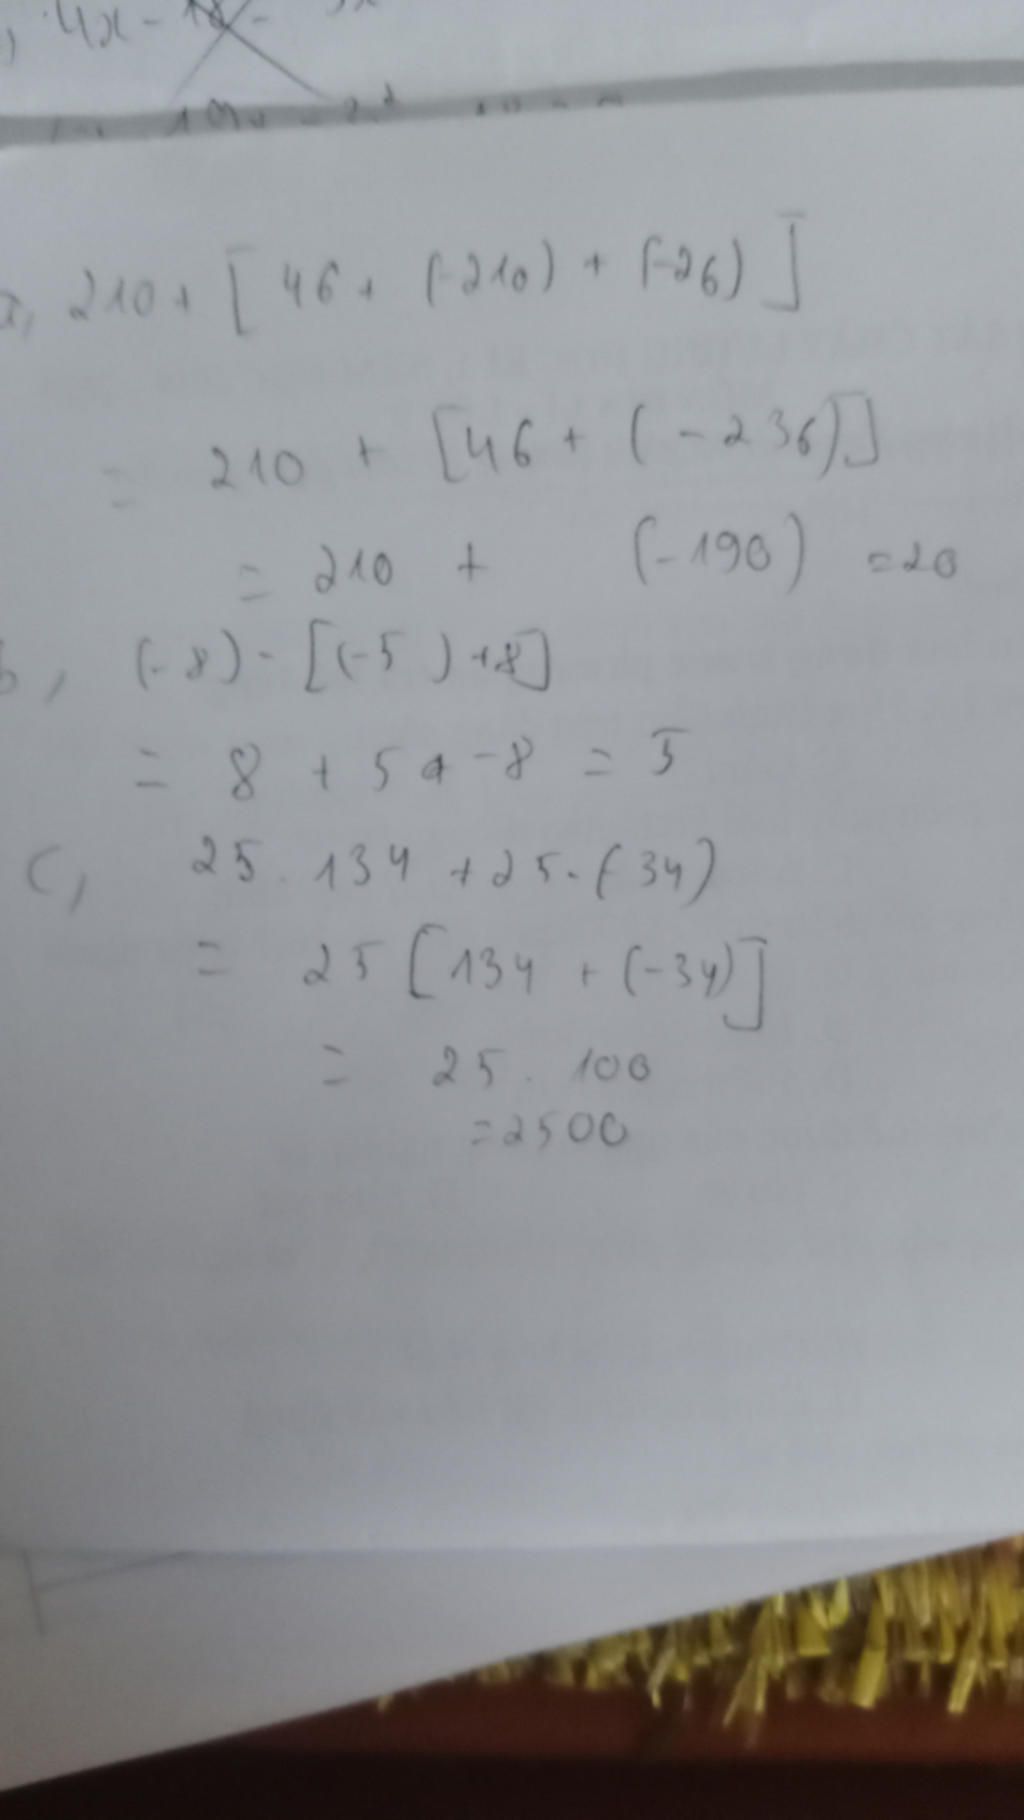 4x - 18 -
a, 210 + [ 46 + (-210) + (-26) ]
= 210 + [46 + ( - 236)]
= 210 + (-190) = 20
b, (-8) - [(-5) + 8]
= 8 + 5 + -8 = 5
c, 25 . 134 + 25 . (34)
= 25 [134 + (-34)]
= 25 . 100
= 2500